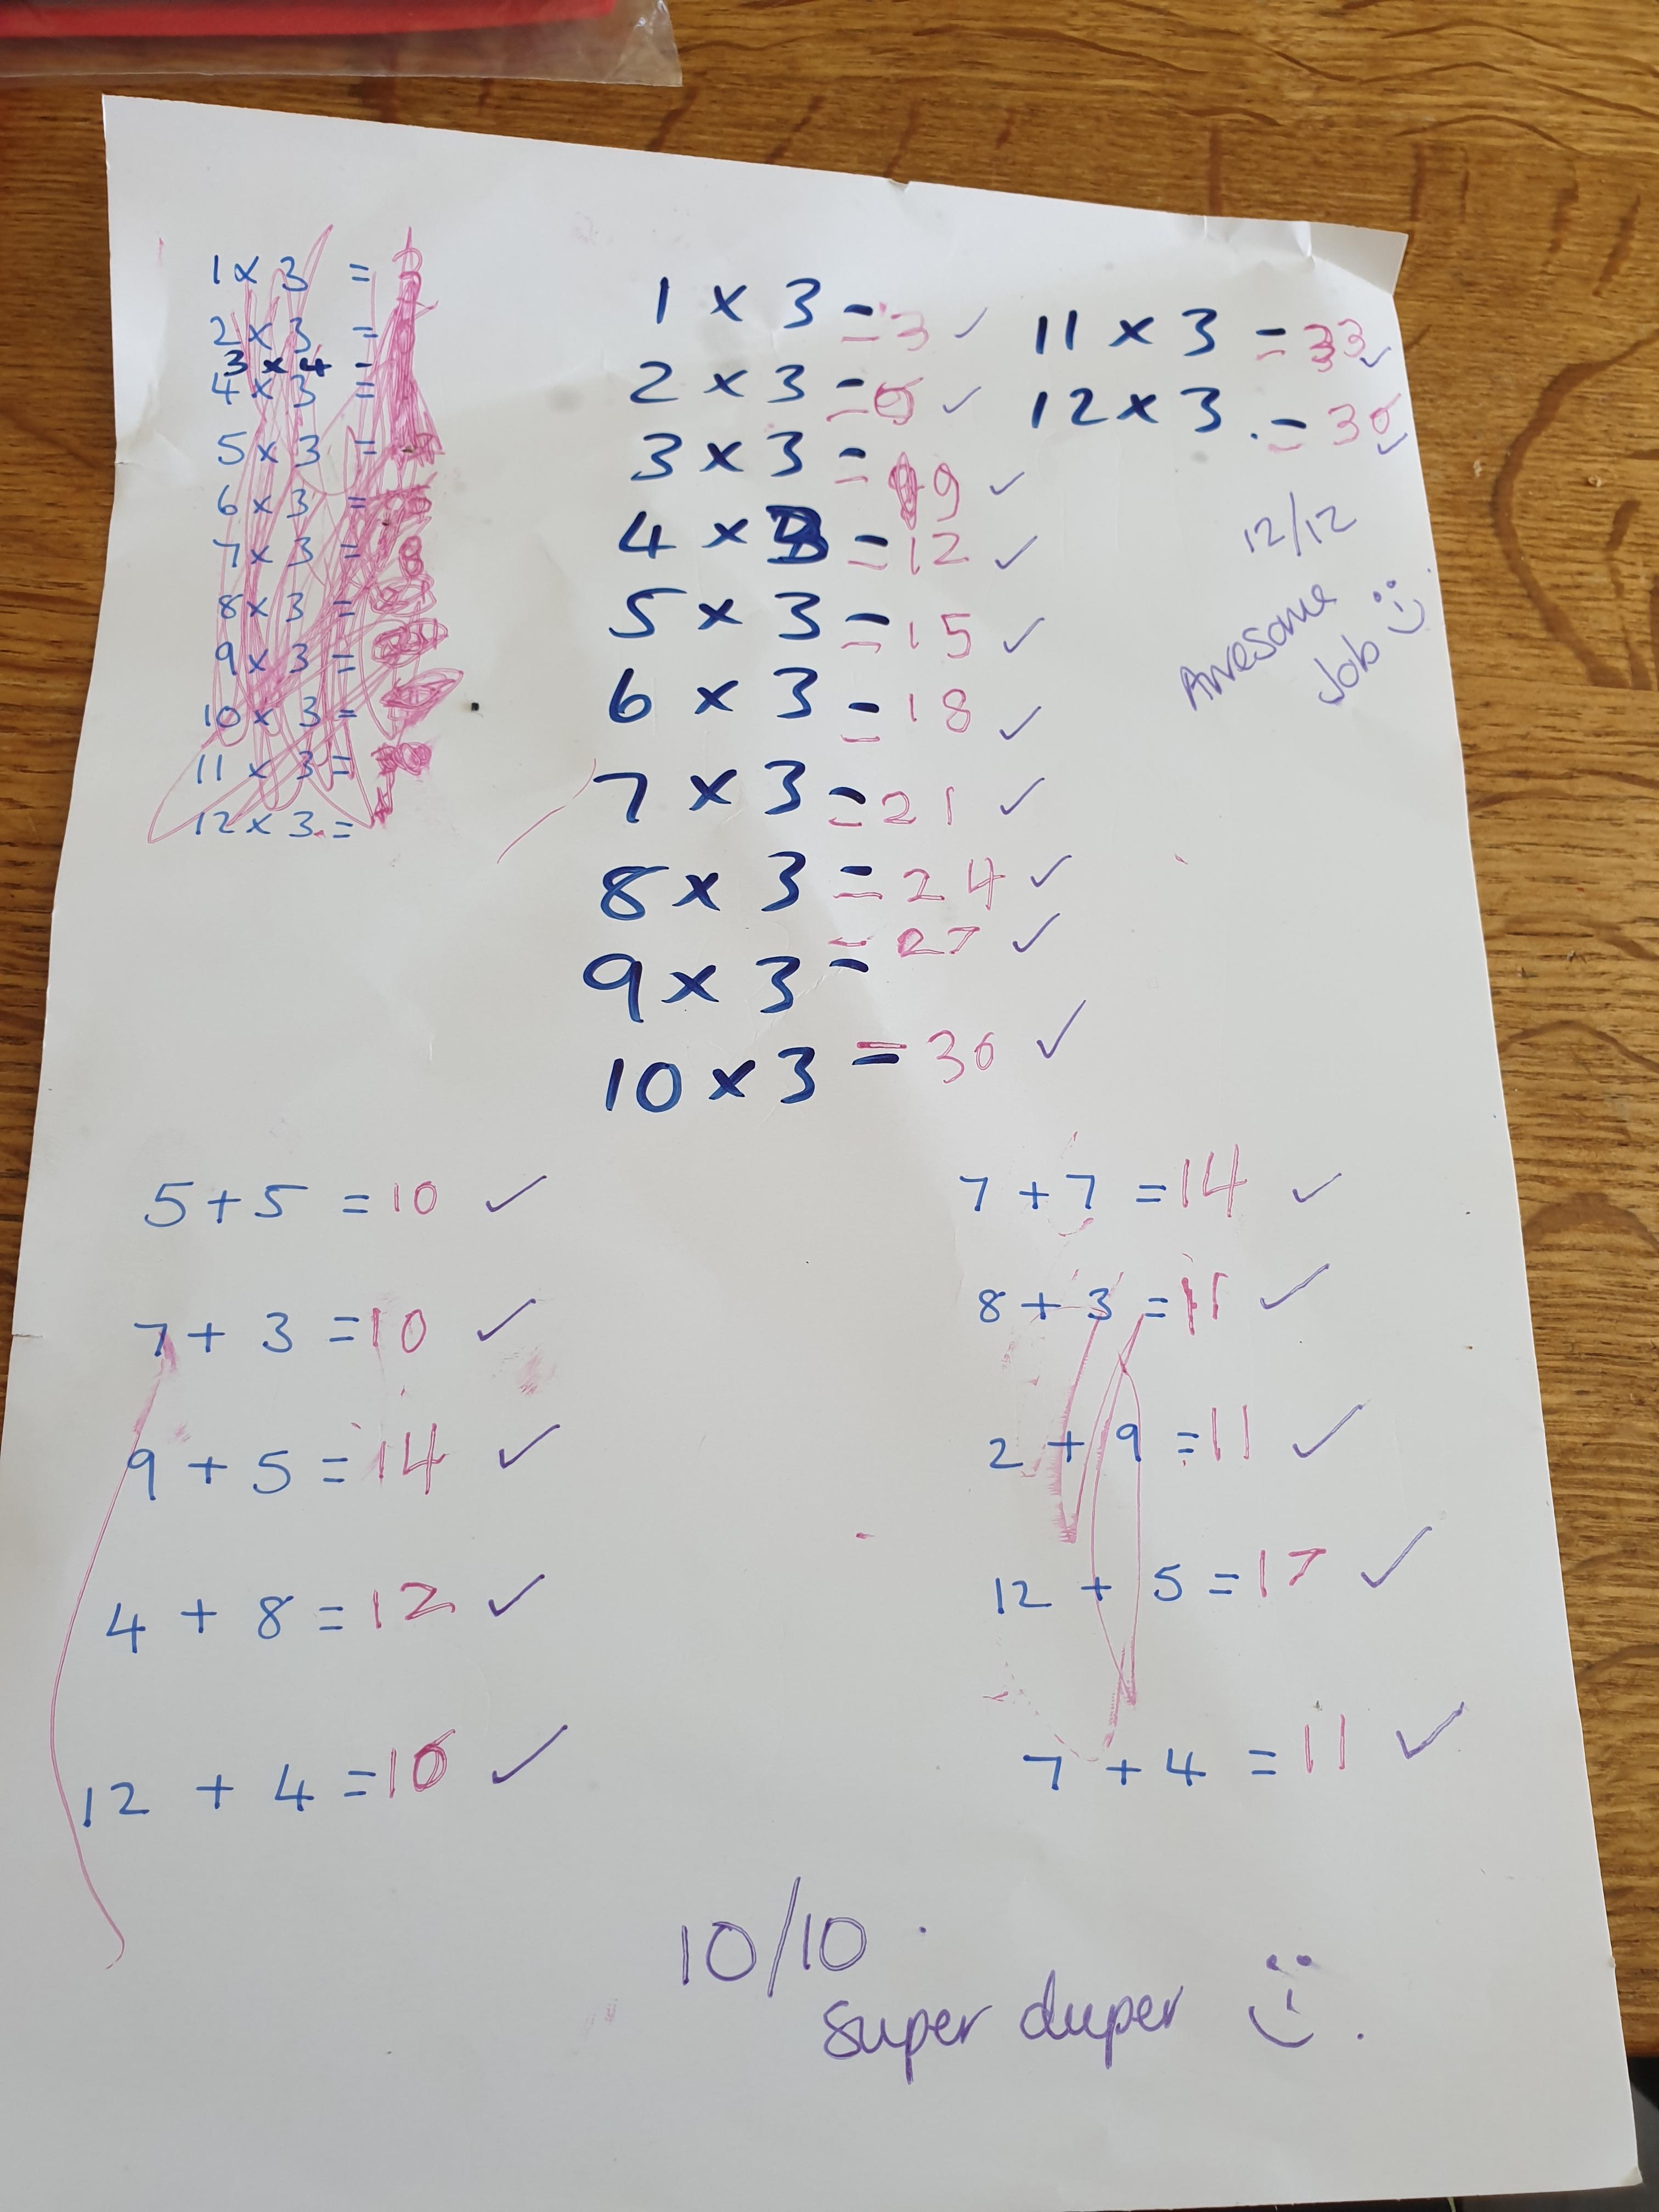 1 x 3 =
2 x 3 =
3 x 4 =
4 x 3 =
5 x 3 =
6 x 3 =
7 x 3 = 8
8 x 3 =
9 x 3 =
10 x 3 =
11 x 3 =
12 x 3 =
1 x 3 = 3 ✓
2 x 3 = 6 ✓
3 x 3 = 9 ✓
4 x 3 = 12 ✓
5 x 3 = 15 ✓
6 x 3 = 18 ✓
7 x 3 = 21 ✓
8 x 3 = 24 ✓
9 x 3 = 27 ✓
10 x 3 = 30 ✓
11 x 3 = 33 ✓
12 x 3 = 36 ✓
12/12
Awesome
Job :)
5 + 5 = 10 ✓
7 + 3 = 10 ✓
9 + 5 = 14 ✓
4 + 8 = 12 ✓
12 + 4 = 16 ✓
7 + 7 = 14 ✓
8 + 3 = 11 ✓
2 + 9 = 11 ✓
12 + 5 = 17 ✓
7 + 4 = 11 ✓
10/10
Super duper :)